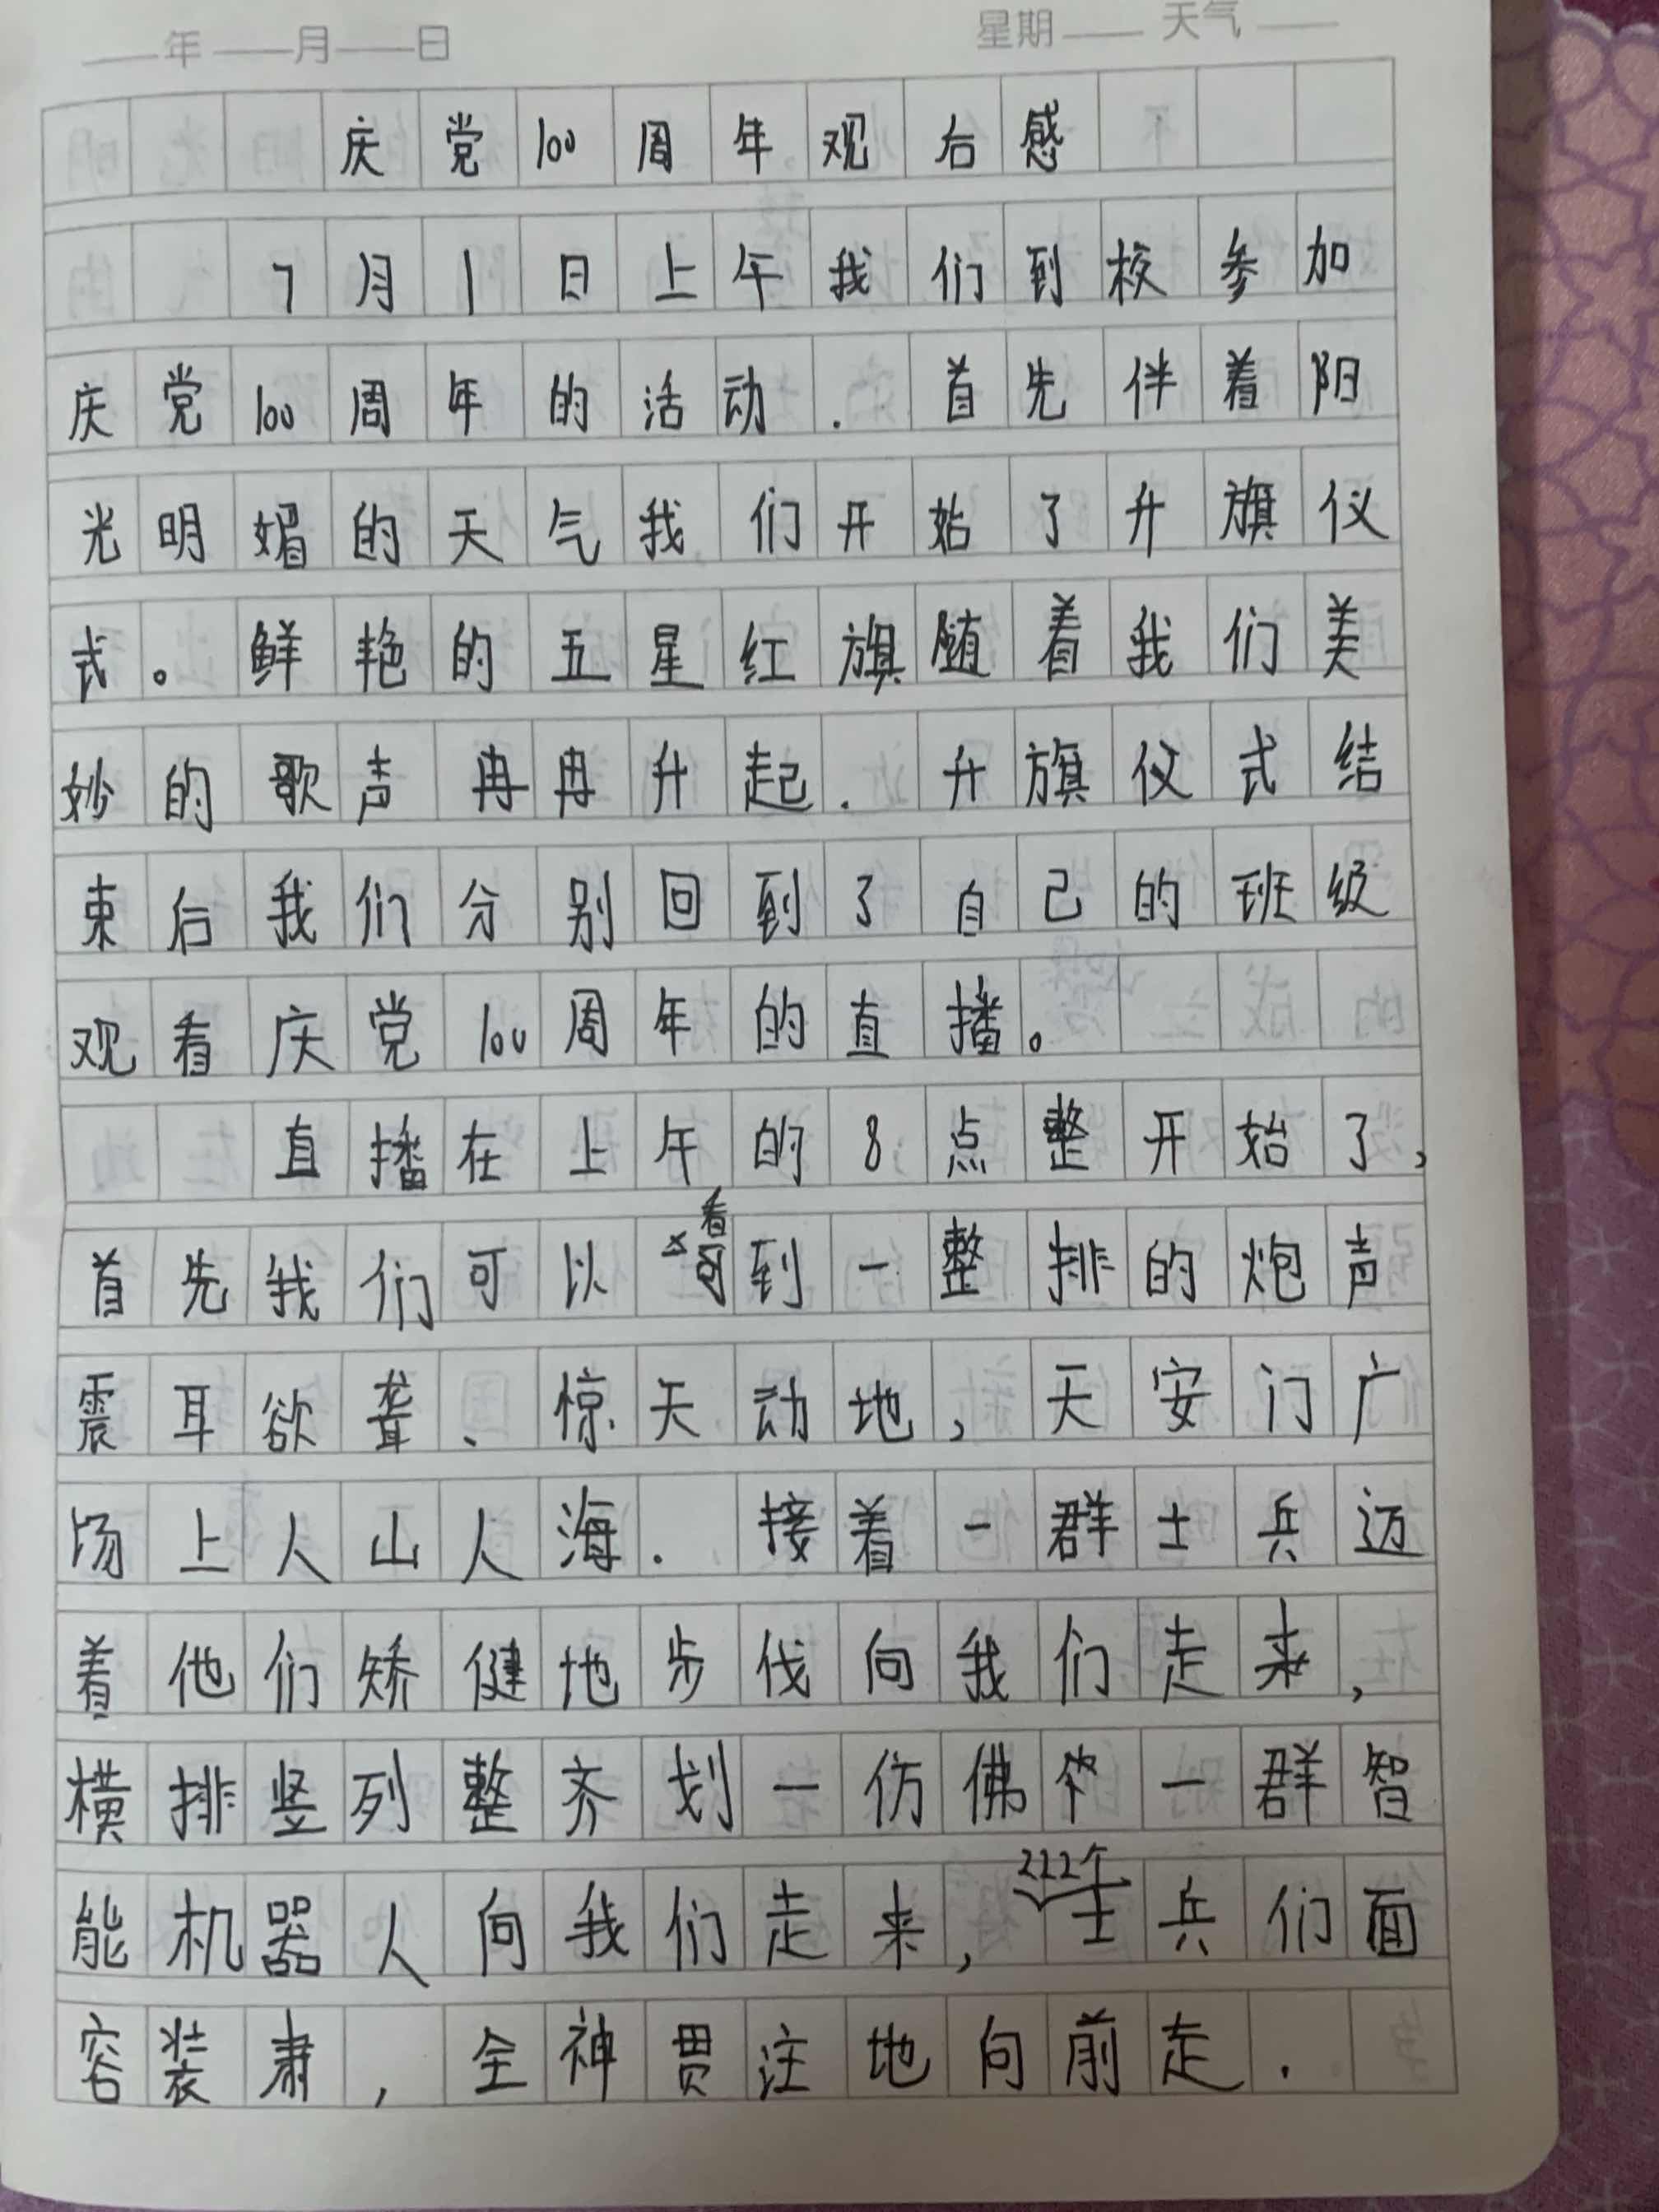 年 月 日 星期 天气
庆党100周年观后感
7月1日上午我们到校参加
庆党100周年的活动. 首先伴着阳
光明媚的天气我们开始了升旗仪
式。鲜艳的五星红旗随着我们美
妙的歌声冉冉升起. 升旗仪式结
束后我们分别回到了自己的班级
观看庆党100周年的直播。
直播在上午的8点整开始了,
首先我们可以看到一整排的炮声
震耳欲聋、惊天动地,天安门广
场上人山人海. 接着一群士兵迈
着他们矫健地步伐向我们走来,
横排竖列整齐划一仿佛一群智
能机器人向我们走来,222个士兵们面
容装肃,全神贯注地向前走.